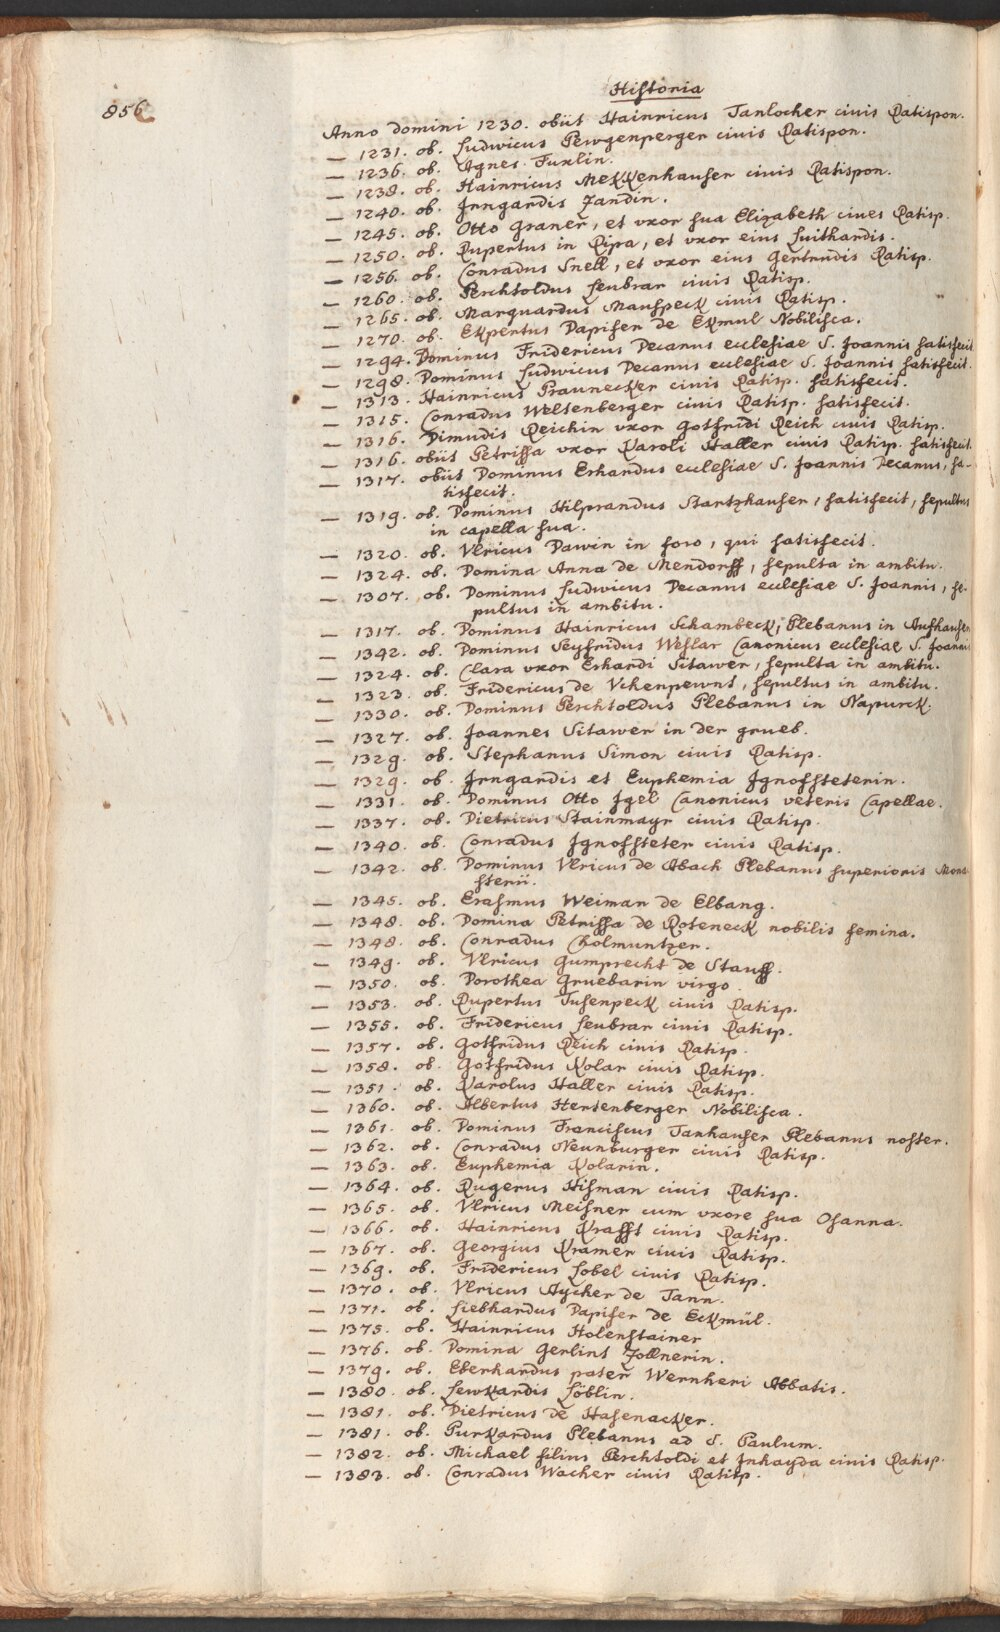 Historia
856
Anno domini 1230. obiit Hainricus Tanlocher civis Ratispon.
— 1231. ob. Ludwicus Pewgenperger civis Ratispon.
— 1236. ob. Agnes Furlin.
— 1238. ob. Hainricus Mekkenhauser civis Ratispon.
— 1240. ob. Irngardis Zandin.
— 1245. ob. Otto Graner, et vxor sua Elizabeth cives Ratisp.
— 1250. ob. Rupertus in Ripa, et vxor eius Luithardis.
— 1256. ob. Conradus Snell, et vxor eius Gertrudis Ratisp.
— 1260. ob. Perchtoldus Leubrar civis Ratisp.
— 1265. ob. Marquardus Mauspeck civis Ratisp.
— 1270. ob. Ekpertus Dapifer de Ekmul Nobilista.
— 1294. Dominus Fridericus Decanus ecclesiae S. Joannis satisfecit
— 1298. Dominus Ludwicus Decanus ecclesiae S. Joannis satisfecit.
— 1313. Hainricus Praunecker civis Ratisp. satisfecit.
— 1315. Conradus Weltenberger civis Ratisp. satisfecit.
— 1316. Dimudis Reichin vxor Gotfridi Reich civis Ratisp.
— 1316. obiit Petrissa vxor Karoli Haller civis Ratisp. satisfecit.
— 1317. obiit Dominus Erhardus ecclesiae S. Joannis Decanus, sa-
tisfecit.
— 1319. ob. Dominus Hilprandus Startzhauser, satisfecit, sepultus
in capella sua.
— 1320. ob. Vlricus Dawin in foro, qui satisfecit.
— 1324. ob. Domina Anna de Mendorff, sepulta in ambitu.
— 1307. ob. Dominus Ludwicus Decanus ecclesiae S. Joannis, se-
pultus in ambitu.
— 1317. ob. Dominus Hainricus Schambeck, Plebanus in Aufhausen
— 1342. ob. Dominus Seyfridus Weslar Canonicus ecclesiae S. Joannis
— 1324. ob. Clara vxor Erhardi Sitawer, sepulta in ambitu.
— 1323. ob. Fridericus de Vchenpewnt, sepultus in ambitu.
— 1330. ob. Dominus Perchtoldus Plebanus in Napurck.
— 1327. ob. Joannes Sitawer in der grueb.
— 1329. ob. Stephanus Simon civis Ratisp.
— 1329. ob. Irngardis et Euphemia Ignofsteterin.
— 1331. ob. Dominus Otto Igel Canonicus veteris Capellae.
— 1337. ob. Dietricus Stainmayr civis Ratisp.
— 1340. ob. Conradus Ignofsteter civis Ratisp.
— 1342. ob. Dominus Vlricus de Abach Plebanus superioris Mona-
sterii.
— 1345. ob. Erasmus Weiman de Elbang.
— 1348. ob. Domina Petrissa de Roteneck nobilis femina.
— 1348. ob. Conradus Cholmuntzer.
— 1349. ob. Vlricus Gumprecht de Stauff.
— 1350. ob. Dorothea Gruebarin virgo.
— 1353. ob. Rupertus Tusenpeck civis Ratisp.
— 1355. ob. Fridericus Leubrar civis Ratisp.
— 1357. ob. Gotfridus Reich civis Ratisp.
— 1358. ob. Gotfridus Kolar civis Ratisp.
— 1351. ob. Karolus Haller civis Ratisp.
— 1360. ob. Albertus Hertenberger Nobilista.
— 1361. ob. Dominus Franciscus Tanhauser Plebanus noster.
— 1362. ob. Conradus Neunburger civis Ratisp.
— 1363. ob. Euphemia Kolarin.
— 1364. ob. Rugerus Hisman civis Ratisp.
— 1365. ob. Vlricus Meisner cum vxore sua Osanna.
— 1366. ob. Hainricus Krafft civis Ratisp.
— 1367. ob. Georgius Kramer civis Ratisp.
— 1369. ob. Fridericus Lobel civis Ratisp.
— 1370. ob. Vlricus Aycher de Tann.
— 1371. ob. Liebhardus Dapifer de Eckmül.
— 1375. ob. Hainricus Holenstainer
— 1376. ob. Domina Gerlint Zollnerin.
— 1379. ob. Eberhardus pater Wernheri Abbatis.
— 1380. ob. Lewkardis Löblin.
— 1381. ob. Dietricus de Hasenacker.
— 1381. ob. Purkardus Plebanus ad S. Paulum.
— 1382. ob. Michael filius Perchtoldi et Inhayda civis Ratisp.
— 1383. ob. Conradus Wacher civis Ratisp.